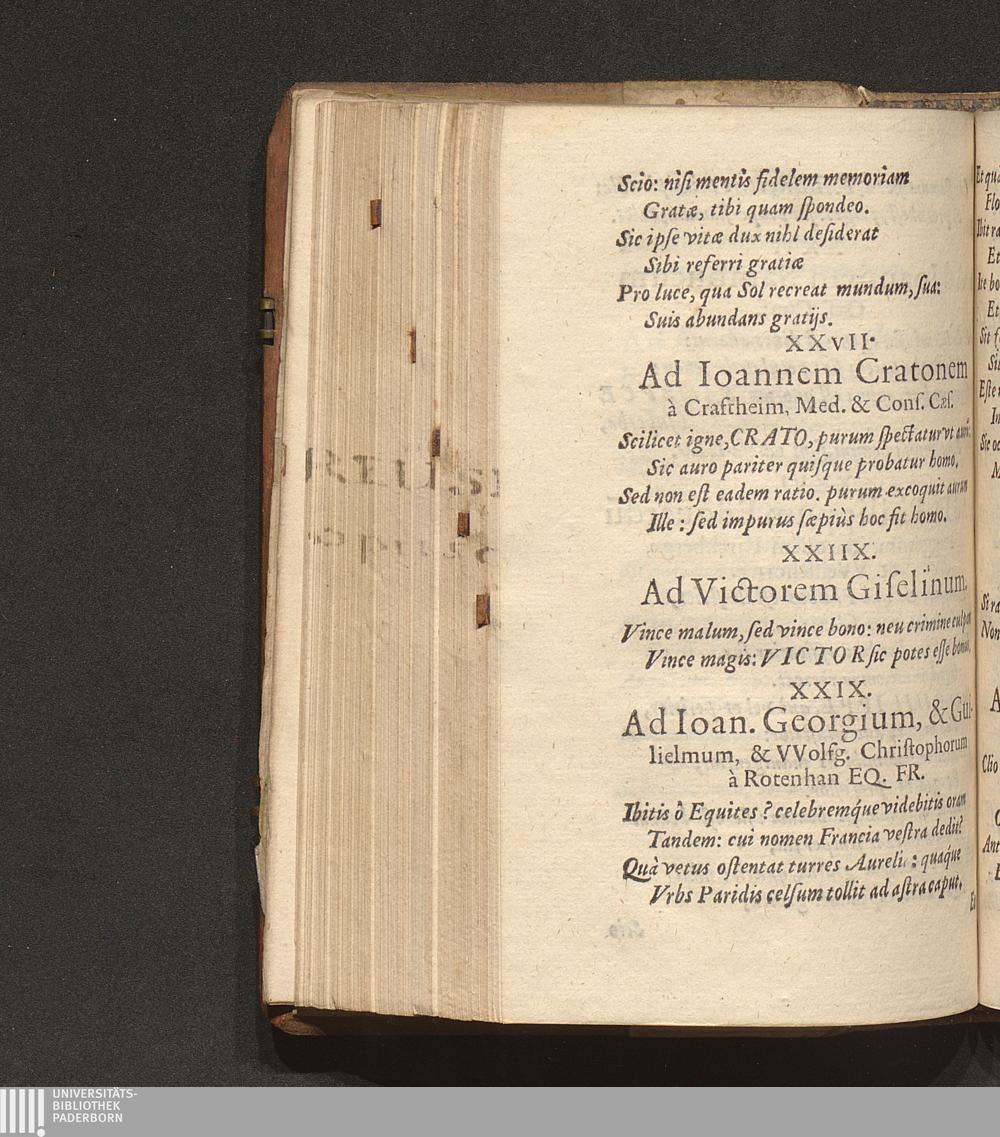 Scio: nisi mentis fidelem memoriam
Gratæ, tibi quam ſpondeo.
Sic ipſe vitæ dux nihl deſiderat
Sibi referri gratiæ
Pro luce, qua Sol recreat mundum, ſua:
Suis abundans gratijs.
XXVII.
Ad Ioannem Cratonem
à Craftheim, Med. & Conſ. Cæſ.
Scilicet igne, CRATO, purum ſpectatur vt
Sic auro pariter quiſque probatur homo.
Sed non eſt eadem ratio. purum excoquit aurum
Ille: ſed impurus ſæpiùs hoc fit homo.
XXIIX.
Ad Victorem Giſelinum.
Vince malum, ſed vince bono: neu crimine
Vince magis: VICTOR ſic potes eſſe bonus.
XXIX.
Ad Ioan. Georgium, & Gui-
lielmum, & VVolfg. Chriſtophorum
à Rotenhan EQ. FR.
Ibitis ô Equites? celebremq́ue videbitis oram
Tandem: cui nomen Francia veſtra dedit?
Quà vetus oſtentat turres : quaq́ue
Vrbs Paridis celſum tollit ad aſtra caput.
Et
Flo
Ibit
Et
Et
Sit
M
Non
A
Clio
UNIVERSITÄTS-
BIBLIOTHEK
PADERBORN